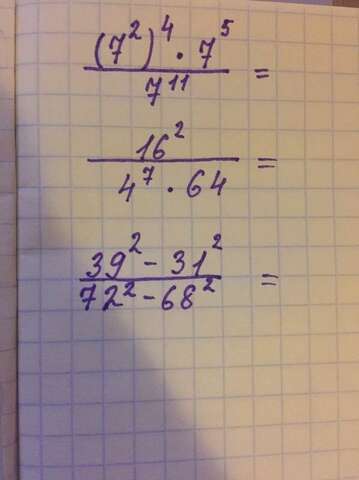 (7²)⁴ · 7⁵
7¹¹ =
16²
4⁷ · 64 =
39² - 31²
72² - 68² =